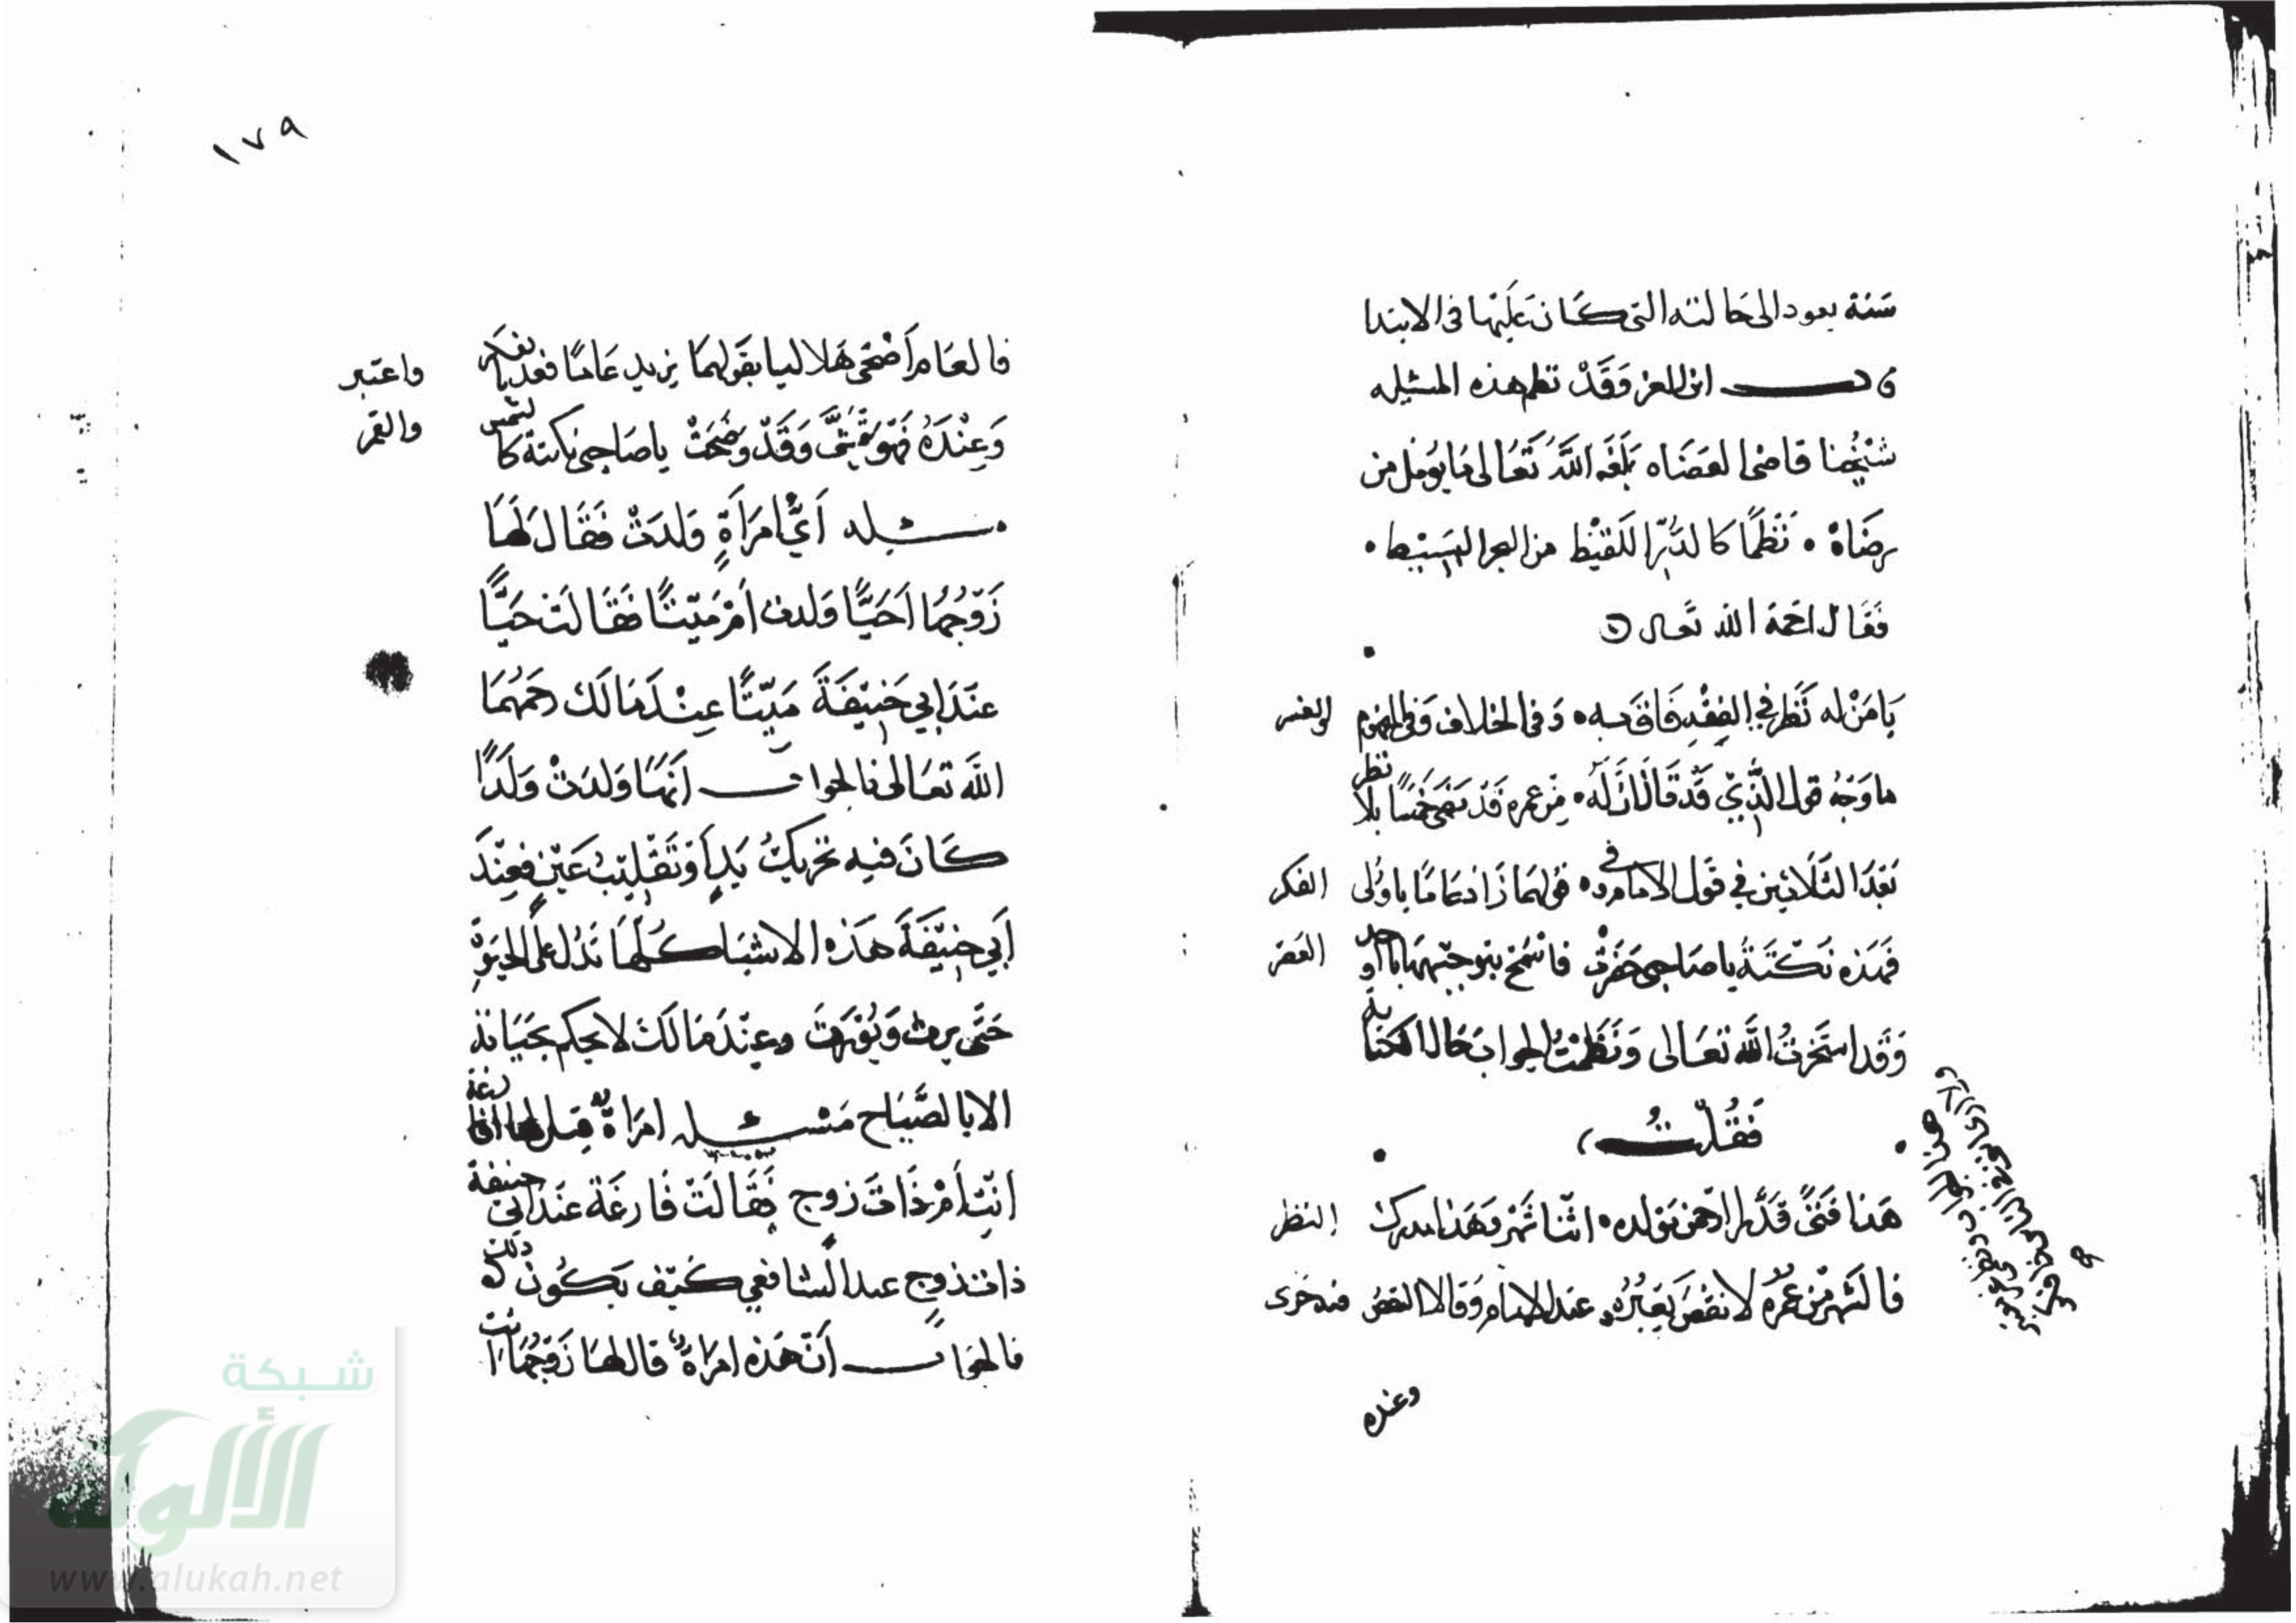 سنة يعود الى حالته التي كان عليها في الابتدا
قال ابن العز وقد نظم هذه المسئله
شيخنا قاضي القضاه بلغه الله تعالى ما يومل من
رضاه • نظمًا كالدر اللقيط من البحر البسيط •
فقال احمد الله تعالى
يا من له نظر في الفقه فاق به • وفي الخلاف وفي المفهوم والعبر
ما وجه قول الذي قد قال ان له • من عمره قد مضى خمسا بلا نظر
بعد الثلاثين في قول الامام وفي • قوليهما زاد عاما يا اولى الفكر
فهذه نكتة يا صاحبي حضرت فاسمح بتوجيهها يا اوحد العصر
وقد استخرت الله تعالى ونظمت الجواب حال الكتابه
فقلت
هذا فتى قدر الرحمن مولده • اثنا شهر وهذا مدرك النظر
فالشهر من عمره لا نقص يعبره • عند الامام وقالا النقص فيه حرى
وعنده
هذا الجواب
١٧٩
فالعام اضحى هلاليا بقولهما يزيد عاما فعد بالفكر واعتبر
وعنده فهو شمسي وقد وضحت يا صاحبي نكتة كالشمس والقمر
مسئله اي امرأة ولدت فقال لها
زوجها احيا ولدت ام ميتا فقالت حيا
عند ابي حنيفة ميتا عند مالك رحمهما
الله تعالى فالجواب انها ولدت ولدا
كان فيه تحريك يد او تقليب عين فعند
ابي حنيفة هذه الاشيا كلها تدل على الحيوة
حتى يرث ويورث وعند مالك لا يحكم بحياته
الا بالصياح مسئله امراة قيل لها افارغة
انت ام ذات زوج فقالت فارغة عند ابي حنيفة
ذات زوج عند الشافعي كيف يكون ذلك
فالجواب ان هذه امراة قال لها زوجها انت
شبكة
الألوكة
www.alukah.net